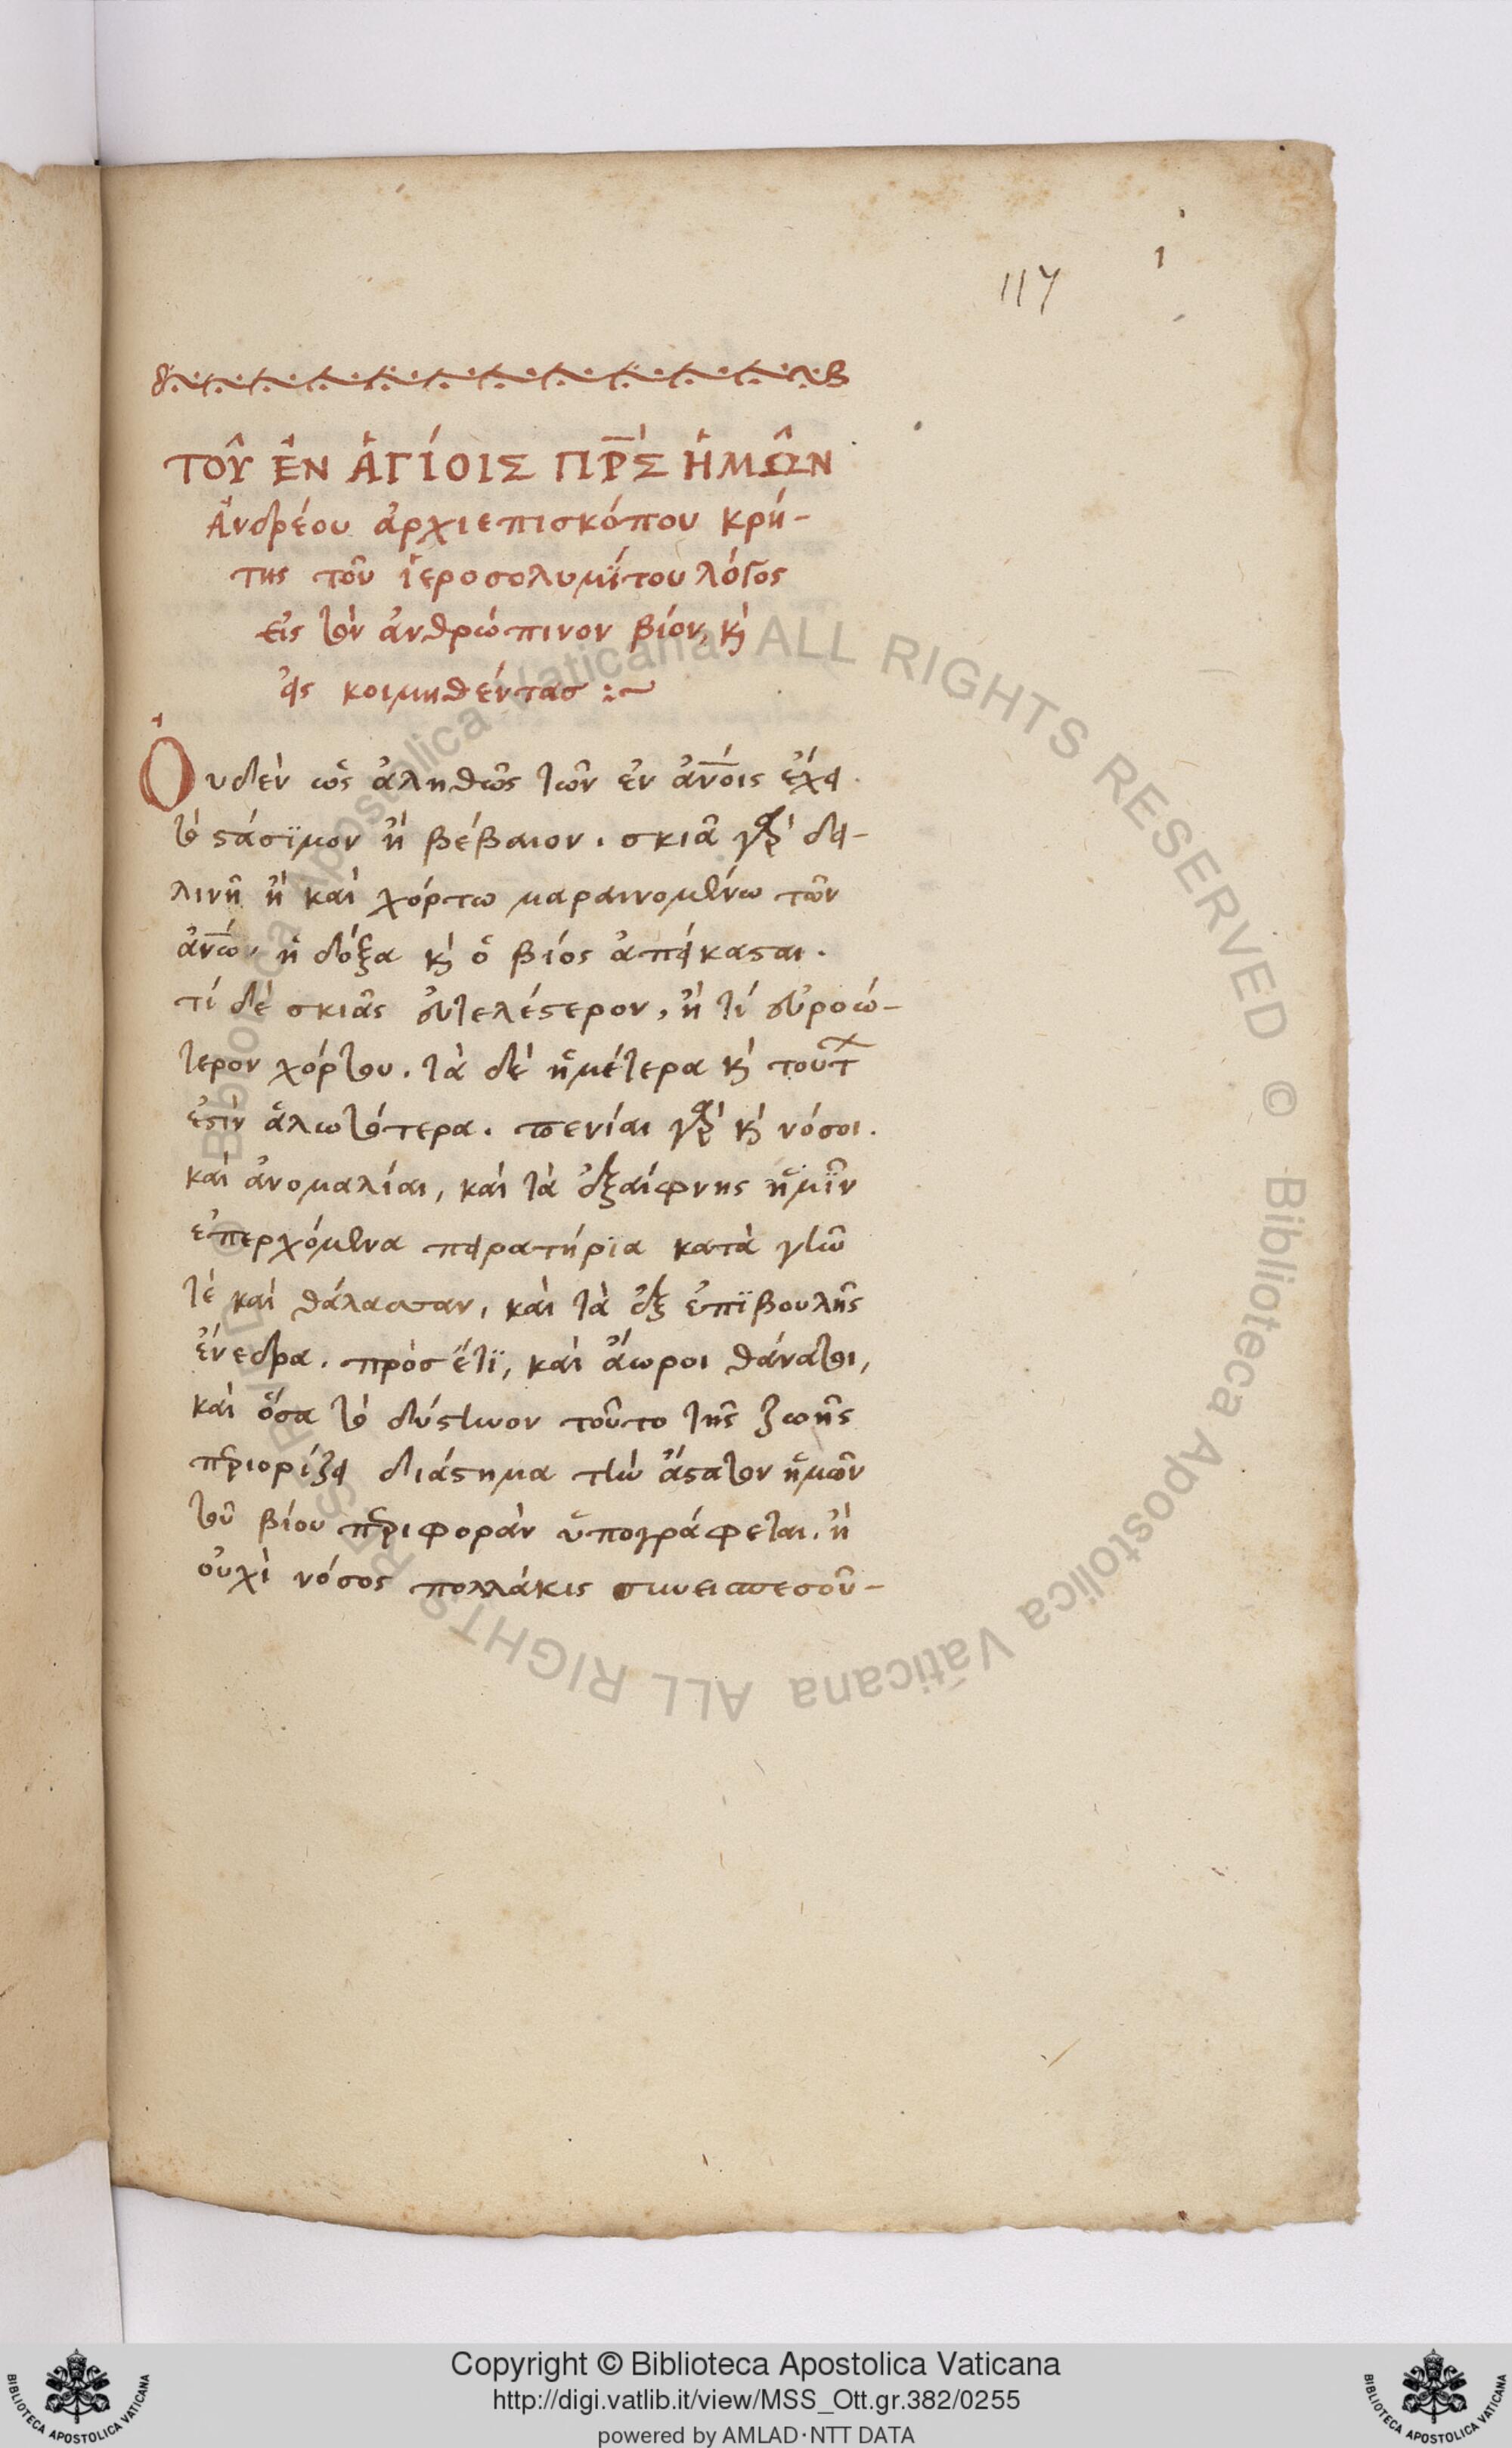 117
1
ΤΟΥ͂ ἘΝ ἉΓΊΟΙΣ ΠΡ̅Σ ἩΜΩ͂Ν
Ἀνδρέου ἀρχιεπισκόπου κρή-
της τοῦ ἱεροσολυμίτου λόγος
εἰς τὸν ἀνθρώπινον βίον, κὶ
εἰς κοιμηθέντας :~
Ουδὲν ὡς ἀληθῶς τῶν ἐν ἀν̅οις ἔχει.
τὸ στάσϊμον ἢ βέβαιον. σκιᾶ γὰρ δει-
λινῆ ἢ καὶ χόρτω μαραινομένω τῶν
ἀν̅ων ἡ δόξα κὶ ὁ βίος ἀπείκασται.
τί δὲ σκιᾶς εὐτελέστερον, ἢ τί εὐροώ-
τερον χόρτου. τὰ δὲ ἡμέτερα κὶ τούτ
ἐστὶν ἁλωτότερα. πενίαι γὰρ κὶ νόσοι.
καὶ ἀνομαλίαι, καὶ τὰ ἐξαίφνης ἡμῖν
ἐπερχόμενα πειρατήρϊα κατὰ γῆν
τὲ καὶ θάλασσαν, καὶ τὰ ἐξ ἐπϊβουλῆς
ἔνεδρα. πρὸσ ἔτϊ, καὶ ἄωροι θάνατοι,
καὶ ὅσα τὸ δύστηνον τοῦτο τῆς ζωῆς
περιορίζει διάστημα τὴν ἄστατον ἡμῶν
τοῦ βίου περιφορὰν ὑπογράφεται. ἢ
οὐχὶ νόσος πολλάκις συνεισπεσοῦ-
© Biblioteca Apostolica Vaticana ALL RIGHTS RESERVED © Biblioteca Apostolica Vaticana ALL RIGHTS RESERVED
Copyright © Biblioteca Apostolica Vaticana
http://digi.vatlib.it/view/MSS_Ott.gr.382/0255
powered by AMLAD·NTT DATA
BIBLIOTECA APOSTOLICA VATICANA
BIBLIOTECA APOSTOLICA VATICANA